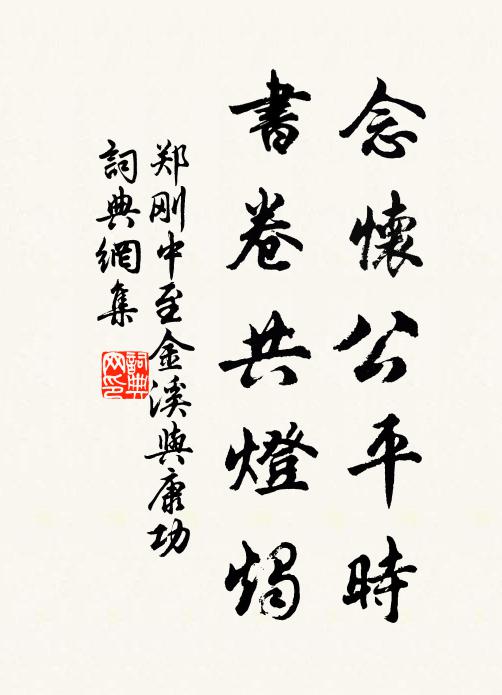 念懷公平時
書卷共燈燭
郑刚中至金溪與康功
詞典網集
詞典網印